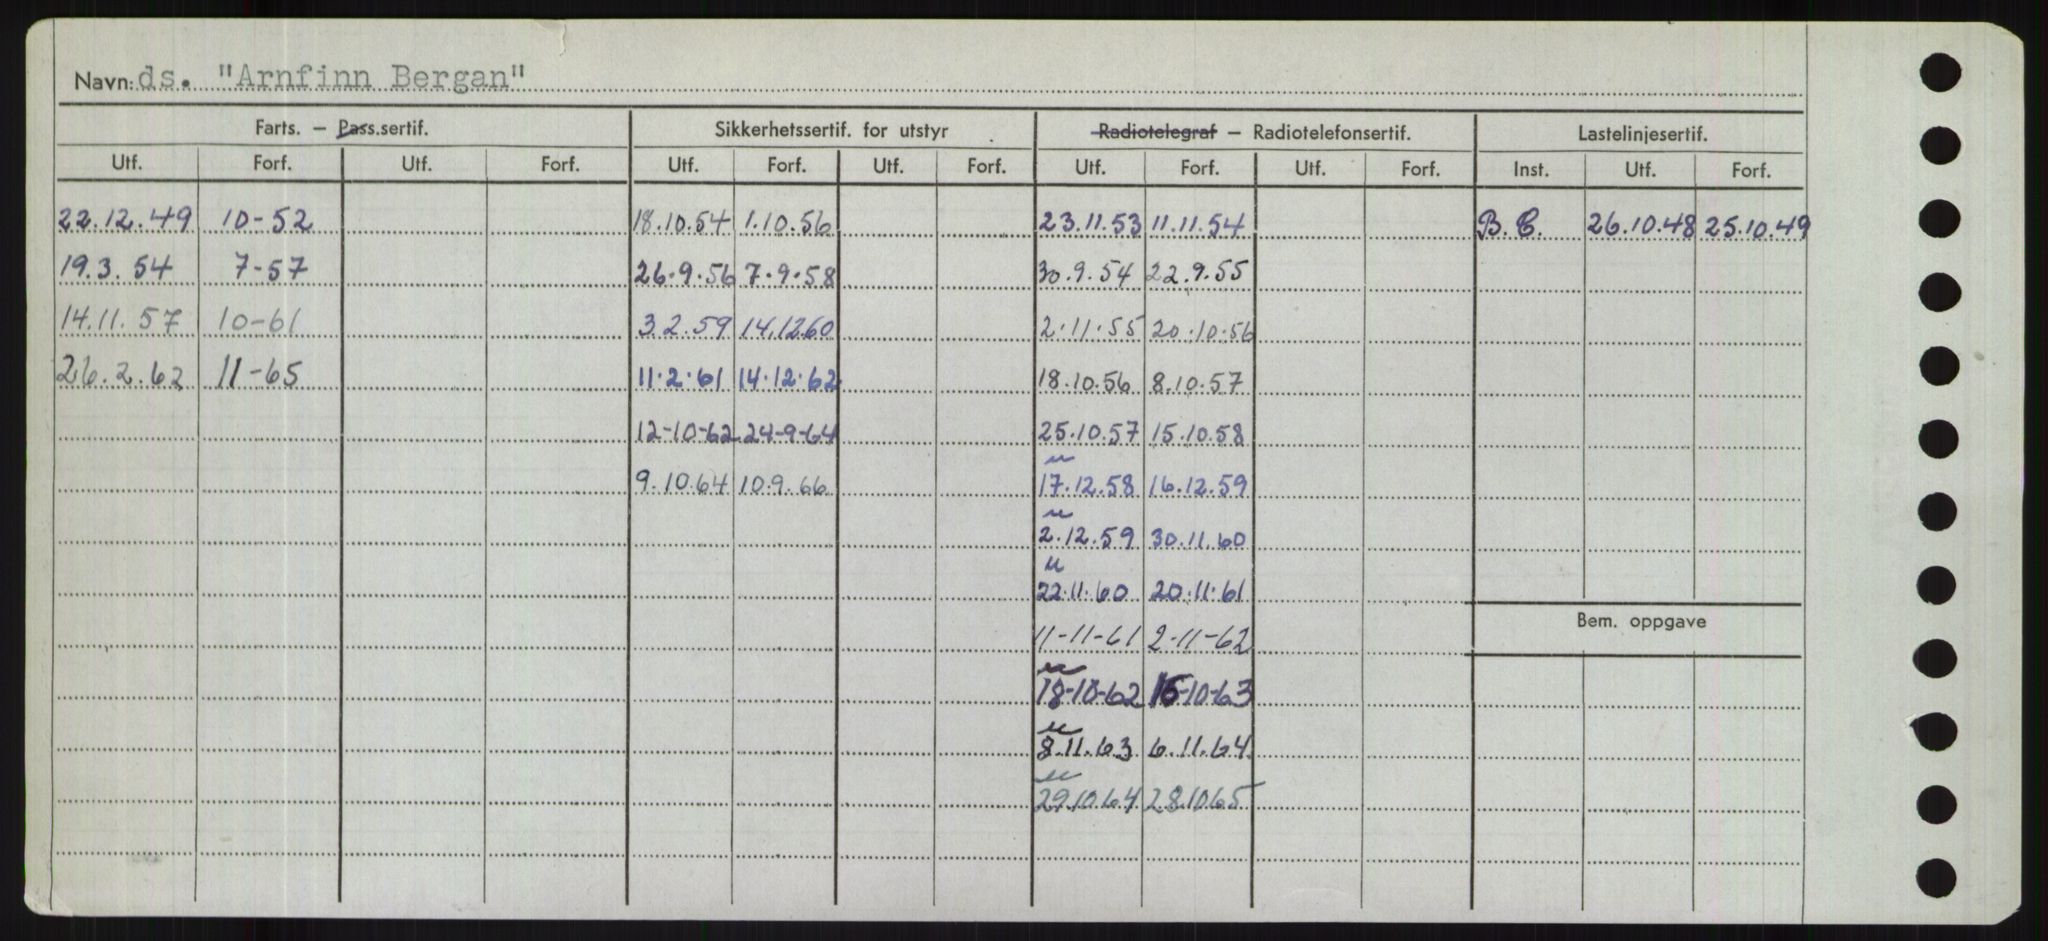 Navn: ds. "Arnfinn Bergan"
Farts. – Pass.sertif. Sikkerhetssertif. for utstyr Radiotelegraf – Radiotelefonsertif. Lastelinjesertif.
Utf. Forf. Utf. Forf. Utf. Forf. Utf. Forf. Utf. Forf. Utf. Forf. Inst. Utf. Forf.
22.12.49 10-52 18.10.54 1.10.56 23.11.53 11.11.54 B.C. 26.10.48 25.10.49
19.3.54 7-57 26.9.56 7.9.58 30.9.54 22.9.55
14.11.57 10-61 3.2.59 14.12.60 2.11.55 20.10.56
26.2.62 11-65 11.2.61 14.12.62 18.10.56 8.10.57
12-10-62 24-9-64 25.10.57 15.10.58
9.10.64 10.9.66 17.12.58 16.12.59
2.12.59 30.11.60
22.11.60 20.11.61
Bem. oppgave
11-11-61 2-11-62
18-10-62 15-10-63
8.11.63 6.11.64
29.10.64 28.10.65